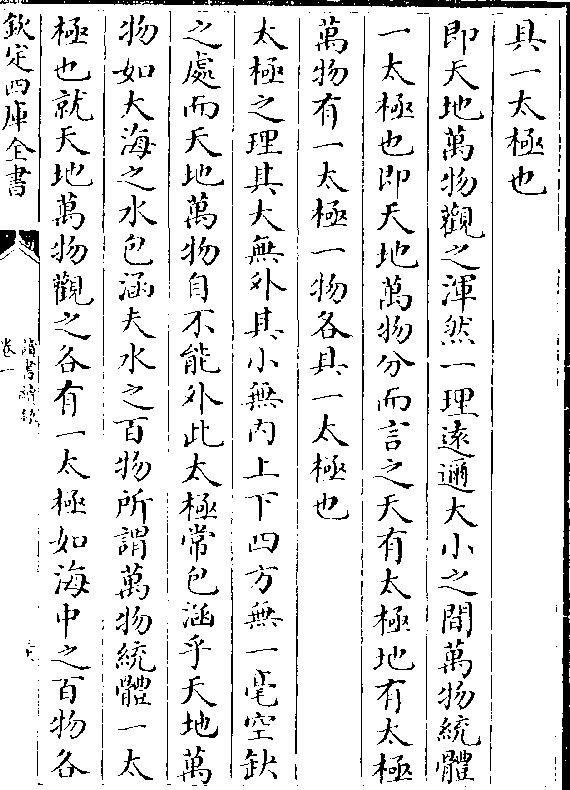 具一太極也
即天地萬物觀之渾然一理遠邇大小之間萬物統體
一太極也即天地萬物分而言之天有太極地有太極
萬物有一太極一物各具一太極也
太極之理其大無外其小無内上下四方無一毫空缺
之處而天地萬物自不能外此太極常包涵乎天地萬
物如大海之水包涵夫水之百物所謂萬物統體一太
極也就天地萬物觀之各有一太極如海中之百物各
欽定四庫全書
讀書續錄
卷一